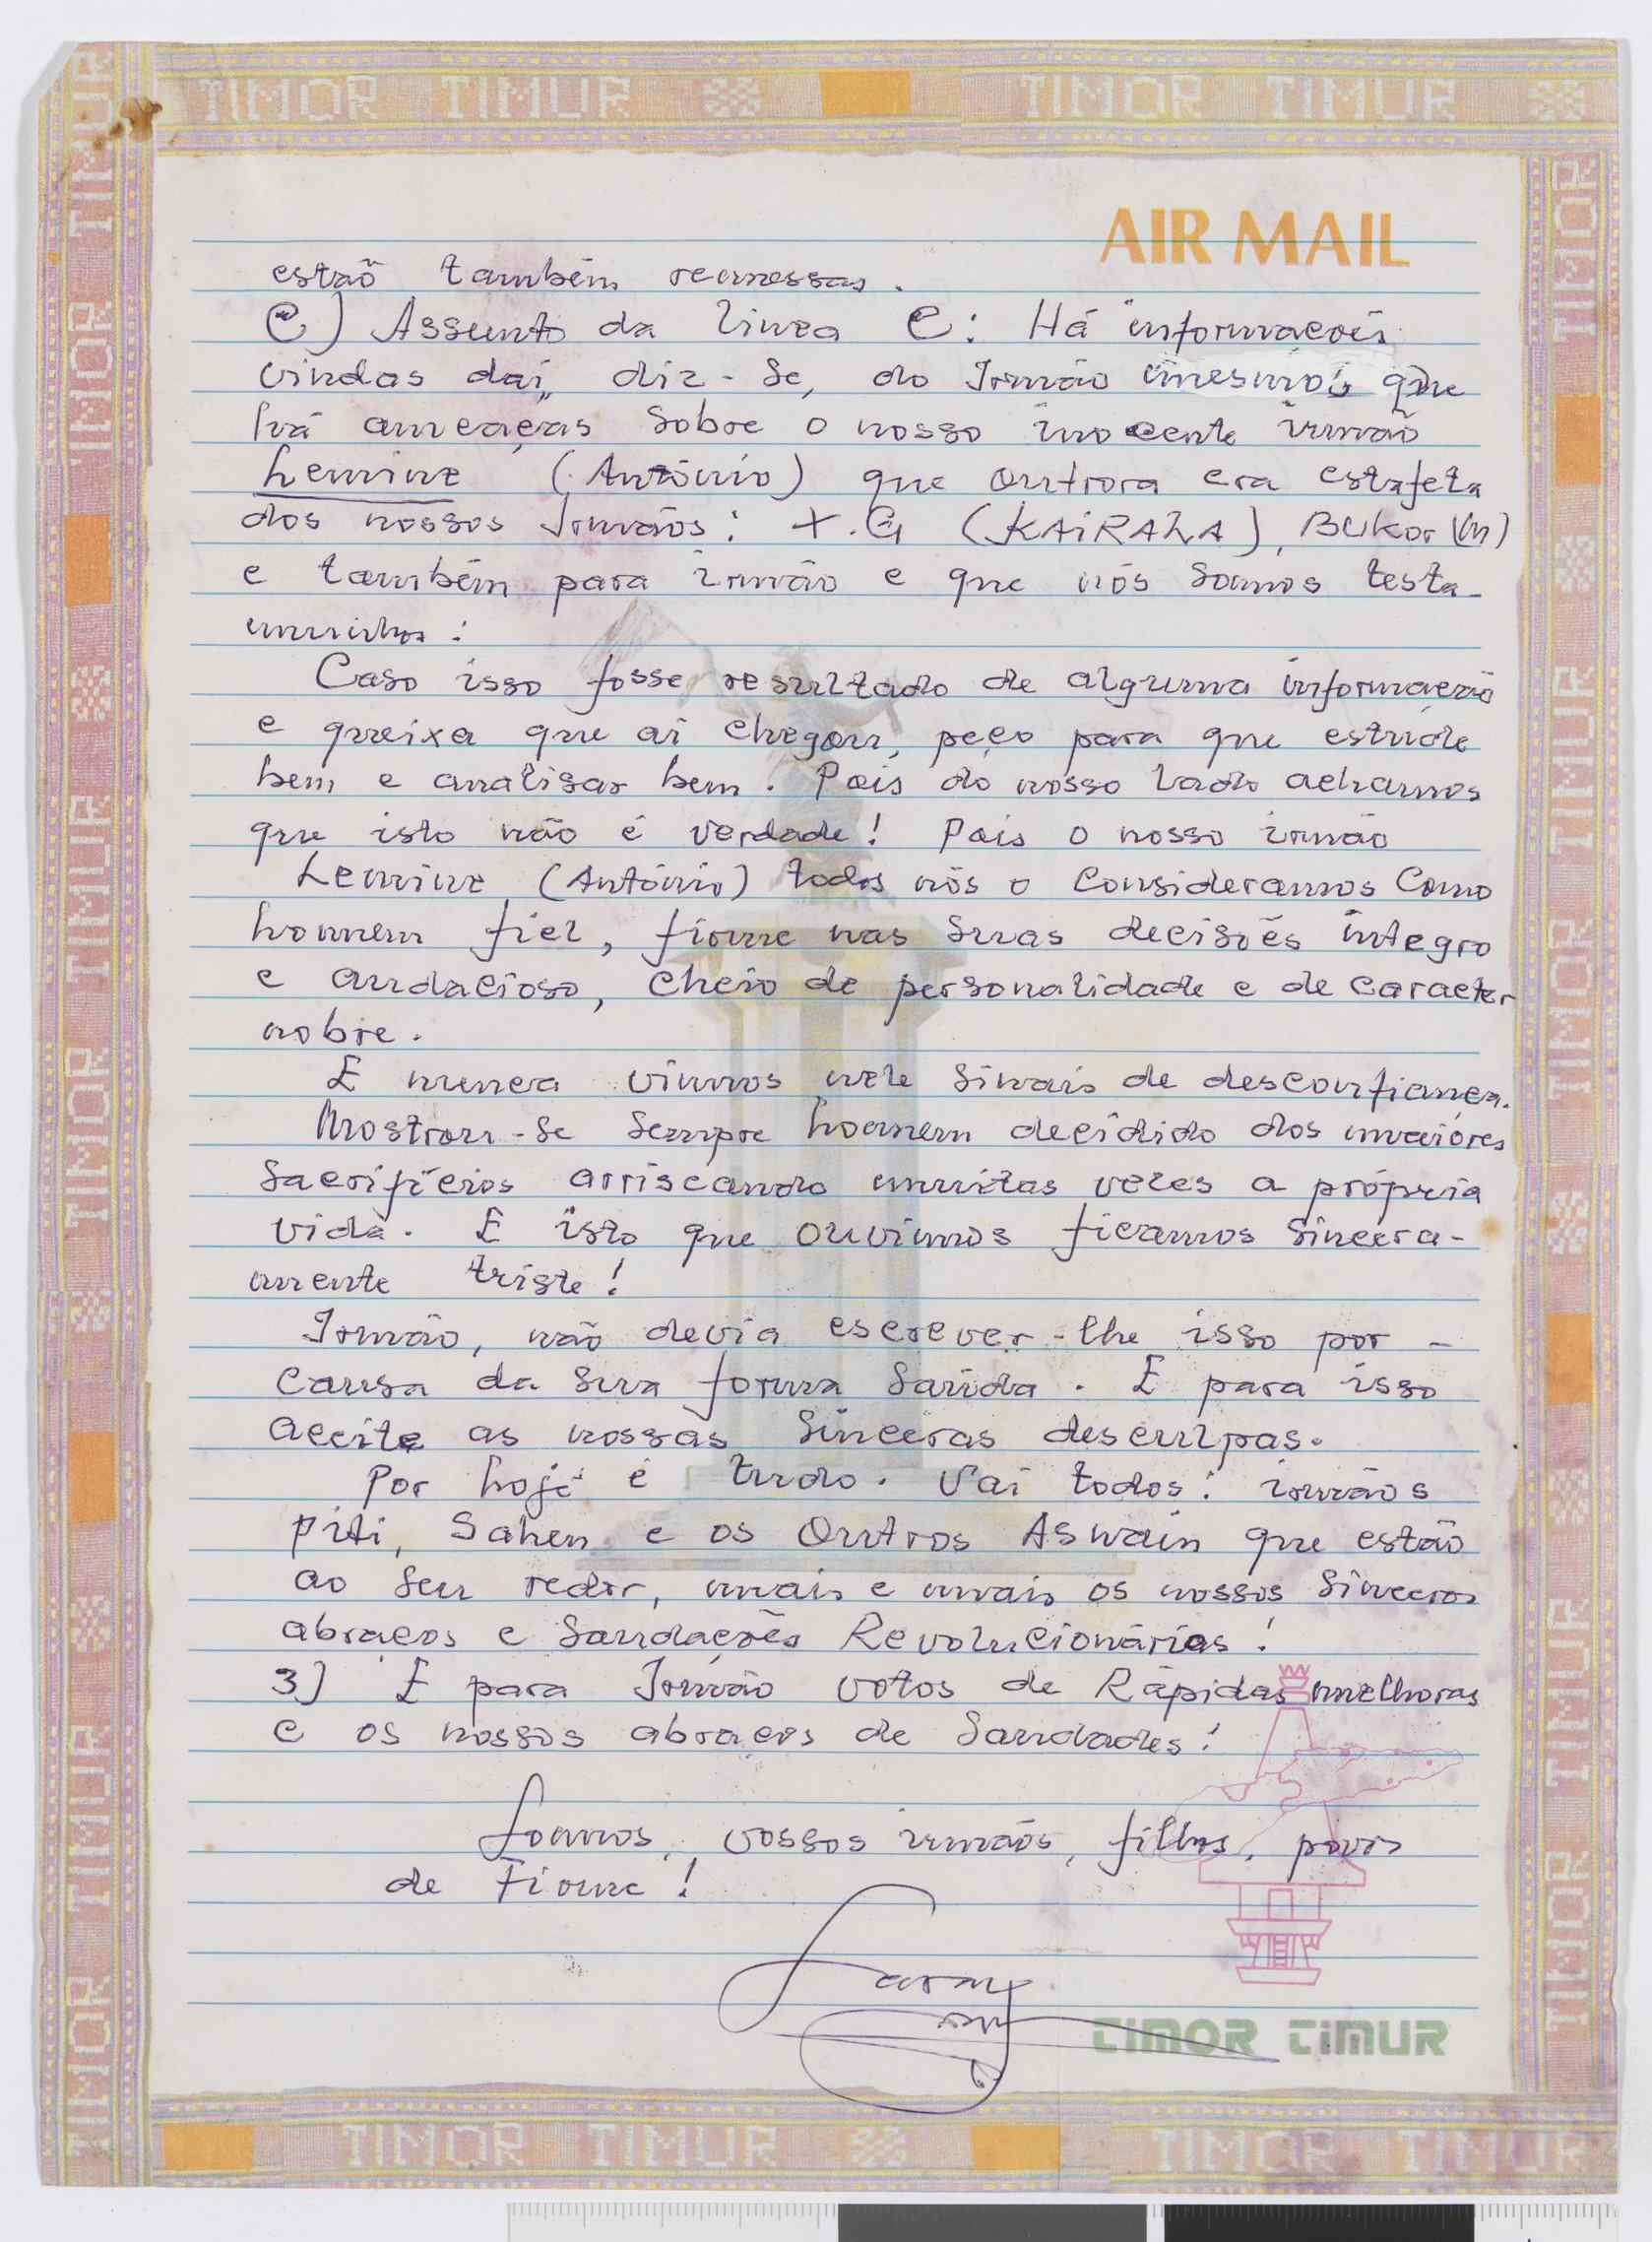 TIMOR TIMUR TIMOR TIMUR
AIR MAIL
estaõ também remessas.
C) Assunto da linea C: Há informações
vindas daí, diz-se, do Irmão mesmo, que
há ameaças sobre o nosso inocente irmão
Lemine (António) que outrora era estafeta
dos nossos Irmãos: X.G (KAIRALA), BUKor (M)
e também para irmão e que nós somos testa-
munhos:
Caso isso fosse resultado de alguma informação
e queixa que aí chegou, peço para que estude
bem e analisar bem. Pois do nosso lado achamos
que isto não é verdade! Pois o nosso irmão
Lemine (António) todos nós o consideramos como
homem fiel, firme nas suas decisões integro
e audacioso, cheio de personalidade e de caracter
nobre.
E nunca vimos nele sinais de desconfiança.
Mostrou-se sempre homem decidido dos maiores
sacrifícios arriscando muitas vezes a própria
vida. E isto que ouvimos ficamos sincera-
mente triste!
Irmão, não devia escrever-lhe isso por-
causa da sua forma saúda. E para isso
aceite as nossas sinceras desculpas.
Por hoje é tudo. Vai todos: irmãos
Piti, Sahen e os outros Aswain que estão
ao seu redor, mais e mais os nossos sinceros
abraços e saudações Revolucionárias!
3) E para Irmão votos de Rápidas melhoras
e os nossos abraços de saudades!
Somos, vossos irmãos, filhos, povos
de Firme!
TIMOR TIMUR
TIMOR TIMUR TIMOR TIMUR